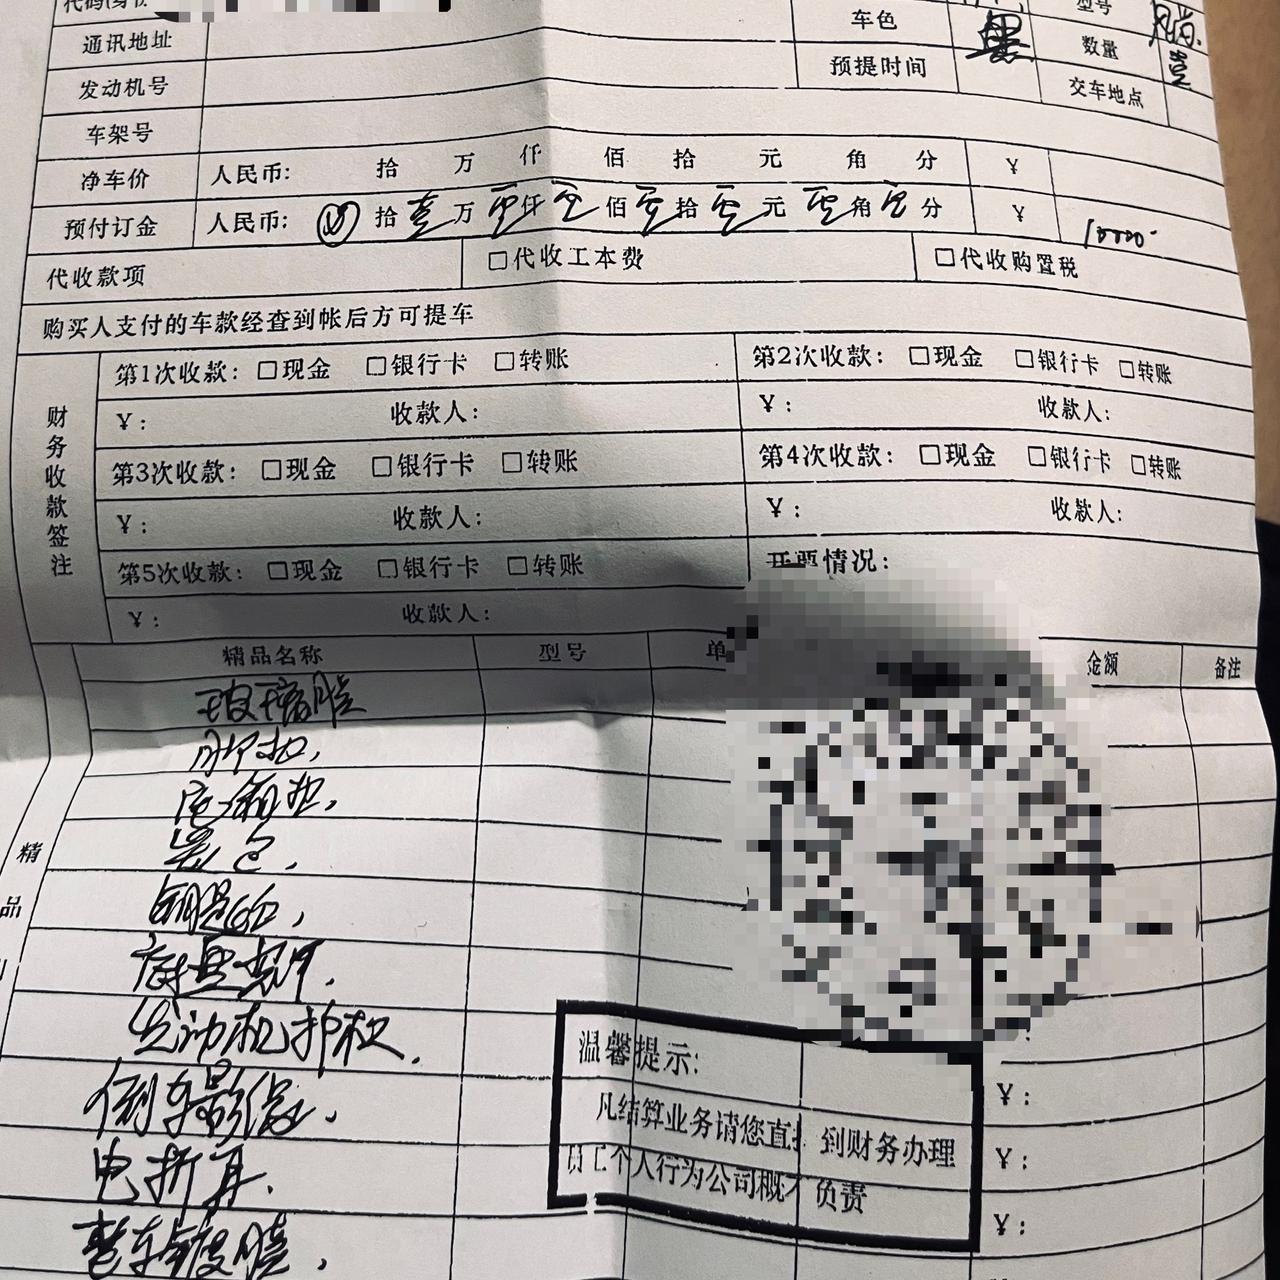 通讯地址 车色 黑 型号 风尚
发动机号 预提时间 数量 壹
车架号 交车地点
净车价 人民币: 拾 万 仟 佰 拾 元 角 分 ¥
预付订金 人民币: 拾 壹 万 零 仟 零 佰 零 拾 零 元 零 角 零 分 ¥ 10000
代收款项 □代收工本费 □代收购置税
购买人支付的车款经查到帐后方可提车
财务收款签注
第1次收款: □现金 □银行卡 □转账 第2次收款: □现金 □银行卡 □转账
¥: 收款人: ¥: 收款人:
第3次收款: □现金 □银行卡 □转账 第4次收款: □现金 □银行卡 □转账
¥: 收款人: ¥: 收款人:
第5次收款: □现金 □银行卡 □转账 开票情况:
¥: 收款人:
精品名称 型号 单 金额 备注
玻璃膜
脚垫,
尾箱垫,
精品
底盘装甲.
发动机护板.
倒车影像.
电折耳.
整车镀膜,
温馨提示:
凡结算业务请您直接到财务办理
员工个人行为公司概不负责
¥:
¥:
¥: